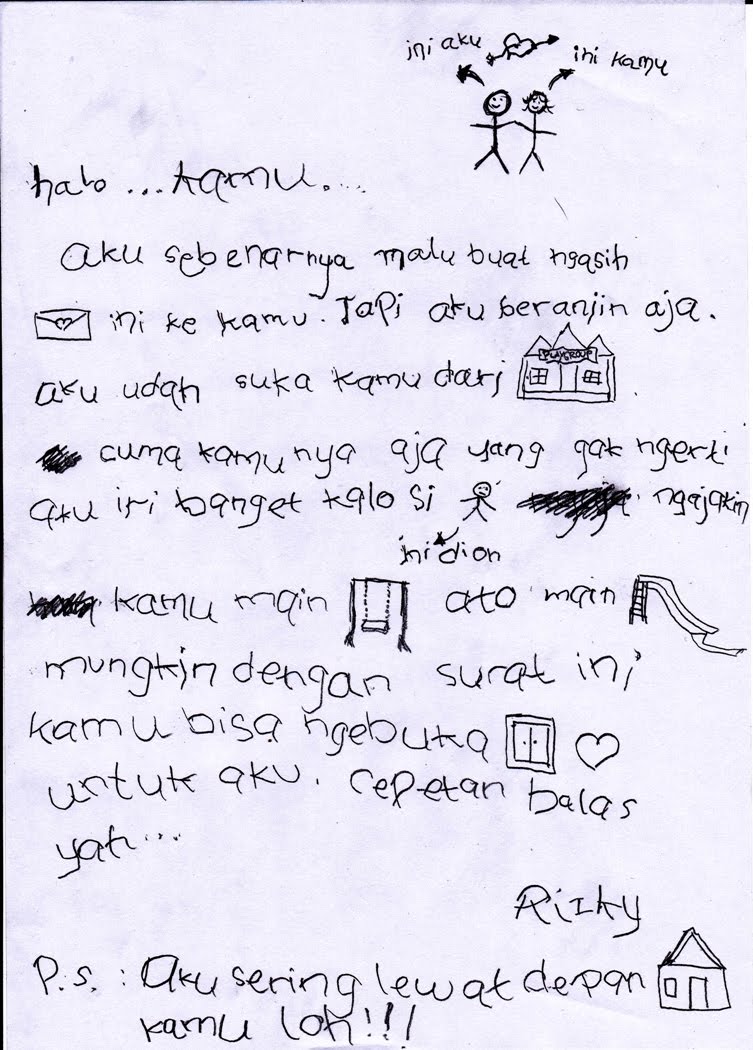 ini aku
ini kamu
halo ... kamu....
aku sebenarnya malu buat ngasih
ini ke kamu. Tapi aku beranjin aja.
aku udah suka kamu dari PLAYGROUP
cuma kamunya aja yang gak ngerti
aku iri banget kalo si ngajakin
ini dion
kamu main ato main
mungkin dengan surat ini
kamu bisa ngebuka
untuk aku. cepetan balas
yah...
Rizky
P.s. : Aku sering lewat depan
kamu loh!!!